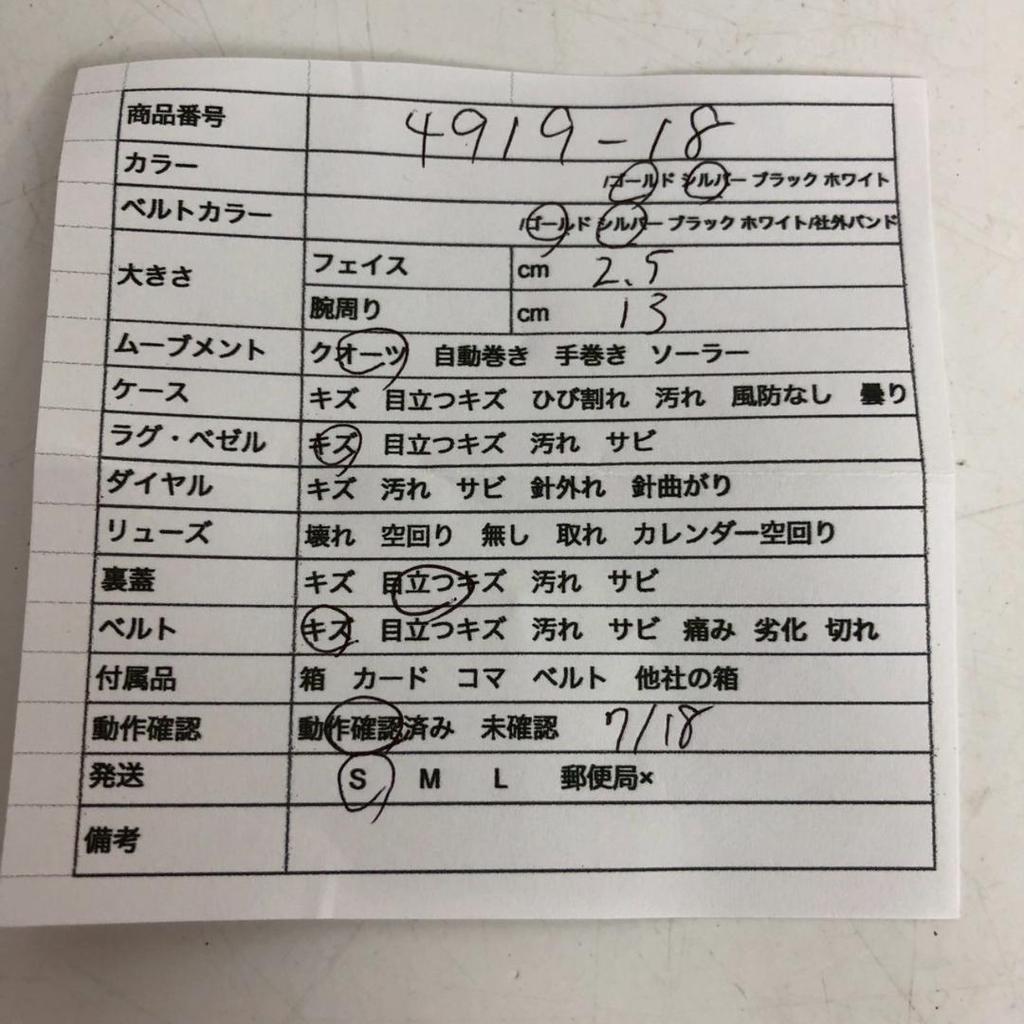 商品番号 4919-18
カラー /ゴールド シルバー ブラック ホワイト
ベルトカラー /ゴールド シルバー ブラック ホワイト/社外バンド
大きさ フェイス cm 2.5
腕周り cm 13
ムーブメント クオーツ 自動巻き 手巻き ソーラー
ケース キズ 目立つキズ ひび割れ 汚れ 風防なし 曇り
ラグ・ベゼル キズ 目立つキズ 汚れ サビ
ダイヤル キズ 汚れ サビ 針外れ 針曲がり
リューズ 壊れ 空回り 無し 取れ カレンダー空回り
裏蓋 キズ 目立つキズ 汚れ サビ
ベルト キズ 目立つキズ 汚れ サビ 痛み 劣化 切れ
付属品 箱 カード コマ ベルト 他社の箱
動作確認 動作確認済み 未確認 7/18
発送 S M L 郵便局×
備考